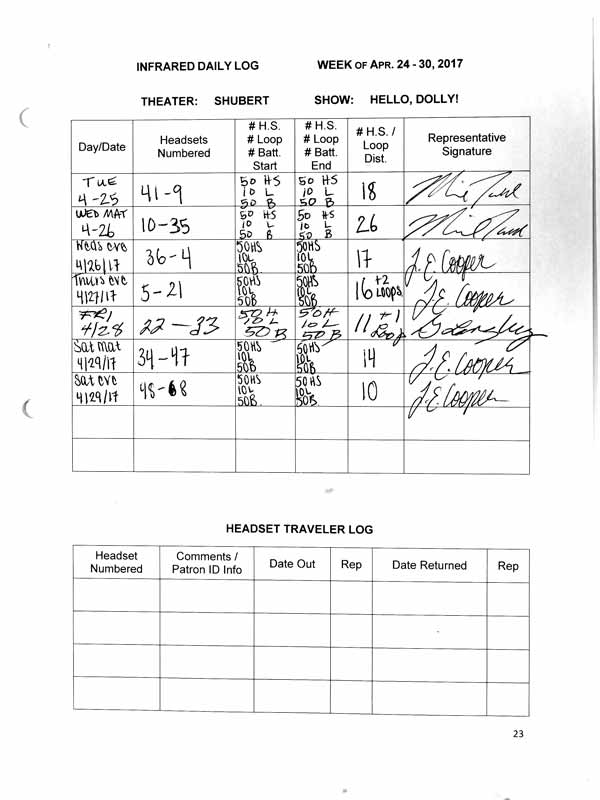 INFRARED DAILY LOG WEEK OF APR. 24 - 30, 2017
THEATER: SHUBERT SHOW: HELLO, DOLLY!
Day/Date
Headsets
Numbered
# H.S.
# Loop
# Batt.
Start
# H.S.
# Loop
# Batt.
End
# H.S. /
Loop
Dist.
Representative
Signature
TUE
4-25
41-9
50 HS
10 L
50 B
50 HS
10 L
50 B
18
WED MAT
4-26
10-35
50 HS
10 L
50 B
50 HS
10 L
50 B
26
Weds eve
4/26/17
36-4
50HS
10L
50B
50HS
10L
50B
17
J.E. Cooper
Thurs eve
4/27/17
5-21
50HS
10L
50B
50HS
10L
50B
16 +2
Loops
J.E. Cooper
FRI
4/28
22-33
50 H
L
50 B
50 H
10 L
50 B
11 +1
Loop
Sat mat
4/29/17
34-47
50HS
10L
50B
50HS
10L
50B
14
J.E. Cooper
Sat eve
4/29/17
48-68
50HS
10L
50B
50HS
10L
50B
10
J.E. Cooper
HEADSET TRAVELER LOG
Headset
Numbered
Comments /
Patron ID Info
Date Out
Rep
Date Returned
Rep
23